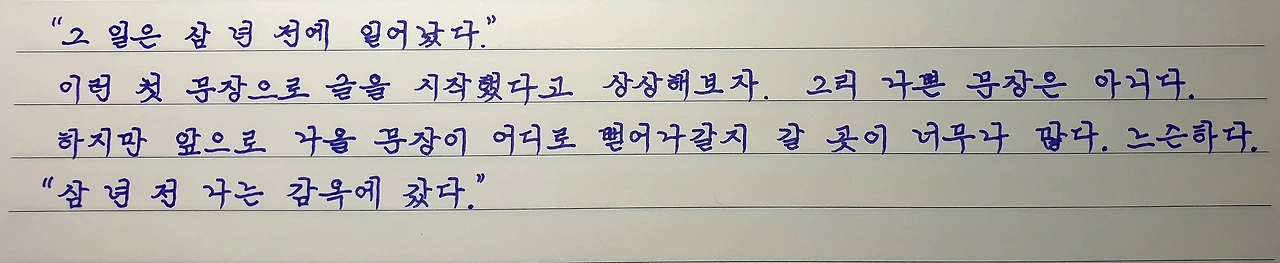 "그 일은 삼 년 전에 일어났다."
이런 첫 문장으로 글을 시작했다고 상상해보자. 그리 나쁜 문장은 아니다.
하지만 앞으로 나올 문장이 어디로 뻗어나갈지 갈 곳이 너무나 많다. 느슨하다.
"삼 년 전 나는 감옥에 갔다."